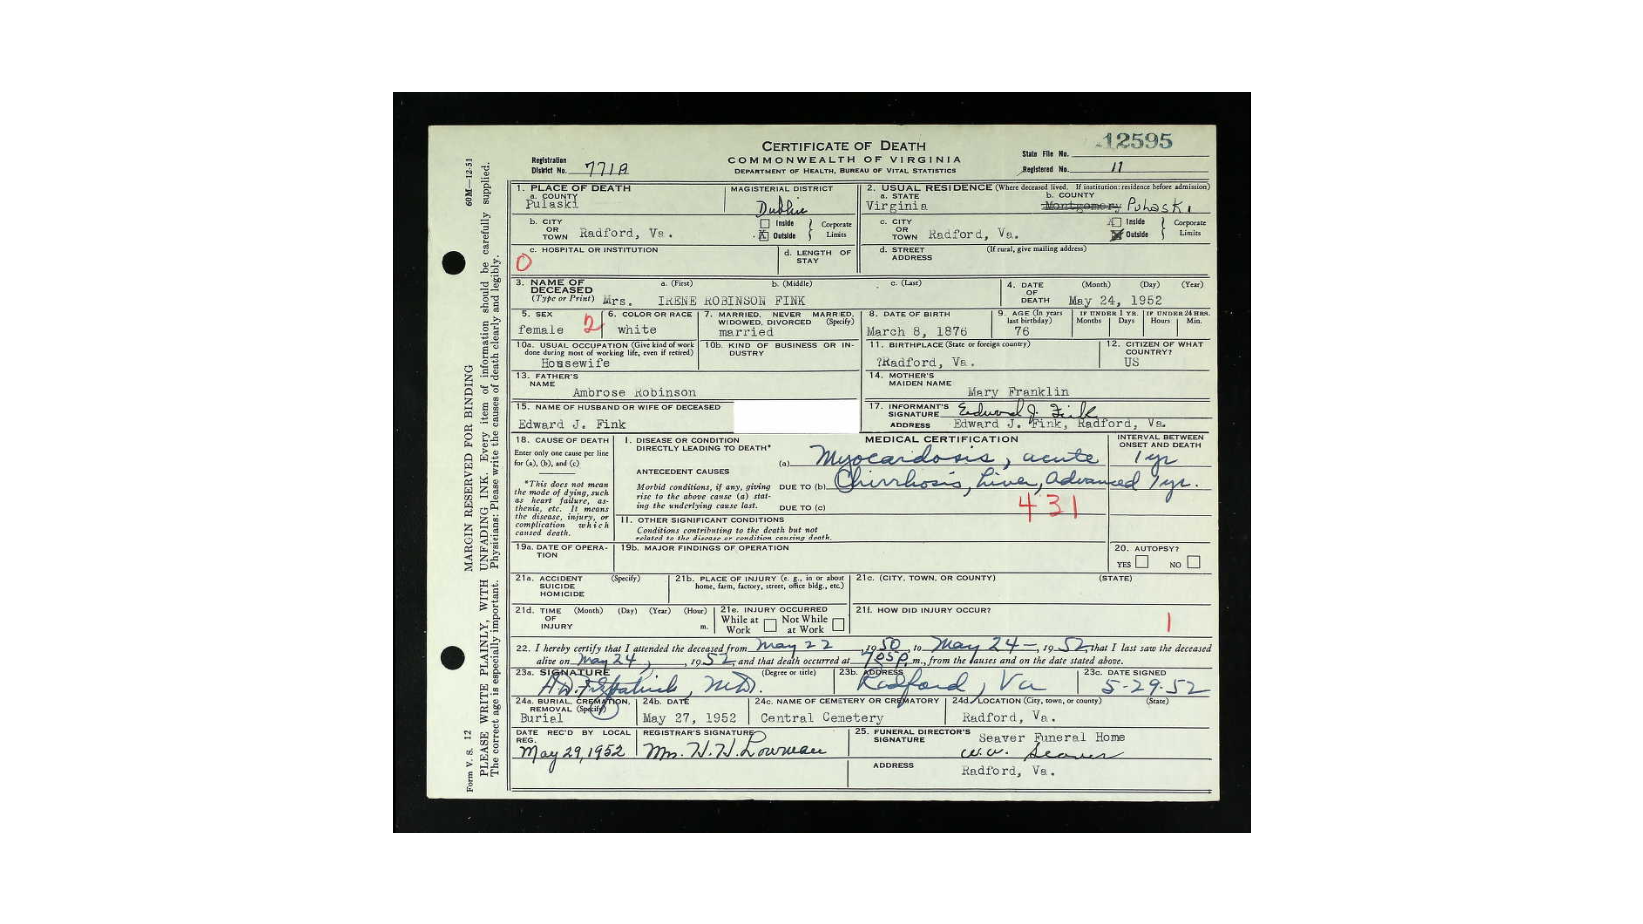 12595
CERTIFICATE OF DEATH
COMMONWEALTH OF VIRGINIA
DEPARTMENT OF HEALTH, BUREAU OF VITAL STATISTICS
Registration District No. 771A
State File No.
Registered No. 11
1. PLACE OF DEATH
a. COUNTY
Pulaski
MAGISTERIAL DISTRICT
Dublin
2. USUAL RESIDENCE (Where deceased lived. If institution: residence before admission)
a. STATE
Virginia
b. COUNTY
Montgomery Pulaski
b. CITY OR TOWN Radford, Va.
Inside
X Outside
Corporate Limits
c. CITY OR TOWN Radford, Va.
Inside
Outside
Corporate Limits
c. HOSPITAL OR INSTITUTION
0
d. LENGTH OF STAY
d. STREET ADDRESS (If rural, give mailing address)
3. NAME OF DECEASED
(Type or Print)
a. (First) b. (Middle) c. (Last)
Mrs. IRENE ROBINSON FINK
4. DATE OF DEATH (Month) (Day) (Year)
May 24, 1952
5. SEX
female 2
6. COLOR OR RACE
white
7. MARRIED, NEVER MARRIED, WIDOWED, DIVORCED (Specify)
married
8. DATE OF BIRTH
March 8, 1876
9. AGE (In years last birthday)
76
IF UNDER 1 YR.
Months Days
IF UNDER 24 HRS.
Hours Min.
10a. USUAL OCCUPATION (Give kind of work done during most of working life, even if retired)
Housewife
10b. KIND OF BUSINESS OR INDUSTRY
11. BIRTHPLACE (State or foreign country)
?Radford, Va.
12. CITIZEN OF WHAT COUNTRY?
US
13. FATHER'S NAME
Ambrose Robinson
14. MOTHER'S MAIDEN NAME
Mary Franklin
15. NAME OF HUSBAND OR WIFE OF DECEASED
Edward J. Fink
17. INFORMANT'S SIGNATURE Edward J. Fink
ADDRESS Edward J. Fink, Radford, Va.
18. CAUSE OF DEATH
Enter only one cause per line for (a), (b), and (c)
*This does not mean the mode of dying, such as heart failure, asthenia, etc. It means the disease, injury, or complication which caused death.
MEDICAL CERTIFICATION
INTERVAL BETWEEN ONSET AND DEATH
I. DISEASE OR CONDITION DIRECTLY LEADING TO DEATH*
(a) Myocardosis, acute 1 yr
ANTECEDENT CAUSES
Morbid conditions, if any, giving rise to the above cause (a) stating the underlying cause last.
DUE TO (b) Chirrhosis, Liver, Advanced 1 yr.
DUE TO (c)
431
II. OTHER SIGNIFICANT CONDITIONS
Conditions contributing to the death but not related to the disease or condition causing death.
19a. DATE OF OPERATION
19b. MAJOR FINDINGS OF OPERATION
20. AUTOPSY?
YES NO
21a. ACCIDENT SUICIDE HOMICIDE (Specify)
21b. PLACE OF INJURY (e. g., in or about home, farm, factory, street, office bldg., etc.)
21c. (CITY, TOWN, OR COUNTY) (STATE)
21d. TIME OF INJURY (Month) (Day) (Year) (Hour) m.
21e. INJURY OCCURRED
While at Work Not While at Work
21f. HOW DID INJURY OCCUR?
1
22. I hereby certify that I attended the deceased from May 22, 1950, to May 24-, 1952, that I last saw the deceased
alive on May 24, 1952, and that death occurred at 7:05 P.m., from the causes and on the date stated above.
23a. SIGNATURE (Degree or title)
Fitzpatrick, M.D.
23b. ADDRESS
Radford, Va
23c. DATE SIGNED
5-29-52
24a. BURIAL, CREMATION, REMOVAL (Specify)
Burial
24b. DATE
May 27, 1952
24c. NAME OF CEMETERY OR CREMATORY
Central Cemetery
24d. LOCATION (City, town, or county) (State)
Radford, Va.
DATE REC'D BY LOCAL REG.
May 29, 1952
REGISTRAR'S SIGNATURE
Mrs. H. H. Lowman
25. FUNERAL DIRECTOR'S SIGNATURE
Seaver Funeral Home
W.W. Seaver
ADDRESS
Radford, Va.
60M—12-51
MARGIN RESERVED FOR BINDING
PLEASE WRITE PLAINLY, WITH UNFADING INK. Every item of information should be carefully supplied.
The correct age is especially important. Physicians: Please write the causes of death clearly and legibly.
Form V. S. 12